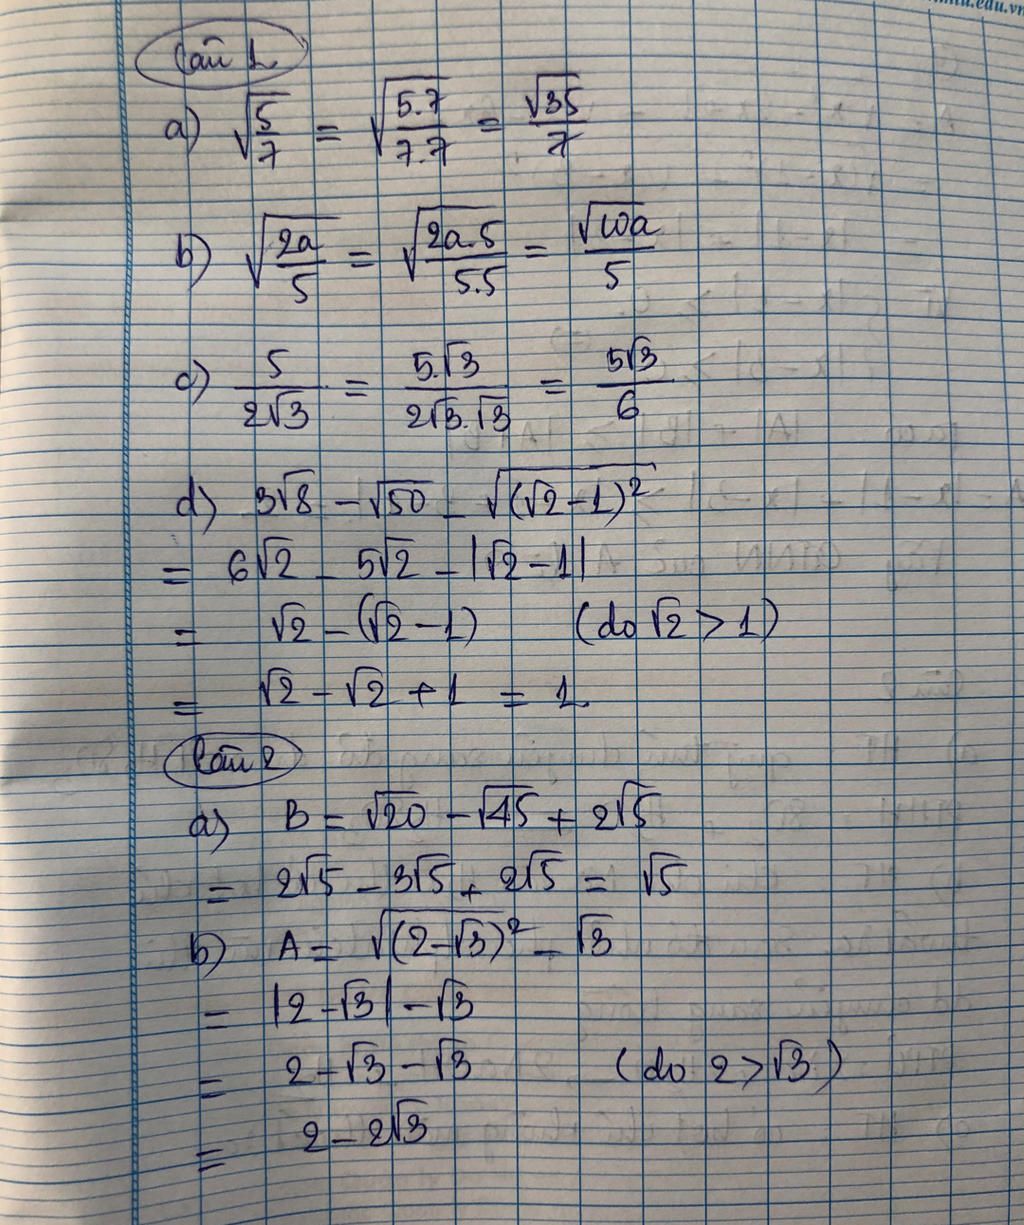 Câu 1
a) √(5/7) = √(5.7/7.7) = √35/7
b) √(2a/5) = √(2a.5/5.5) = √10a/5
c) 5/2√3 = 5.√3/2√3.√3 = 5√3/6
d) 3√8 - √50 - √((√2-1)²)
= 6√2 - 5√2 - |√2-1|
= √2 - (√2-1) (do √2 > 1)
= √2 - √2 + 1 = 1.
Câu 2
a) B = √20 - √45 + 2√5
= 2√5 - 3√5 + 2√5 = √5
b) A = √((2-√3)²) - √3
= |2-√3| - √3
= 2-√3-√3 (do 2>√3)
= 2-2√3